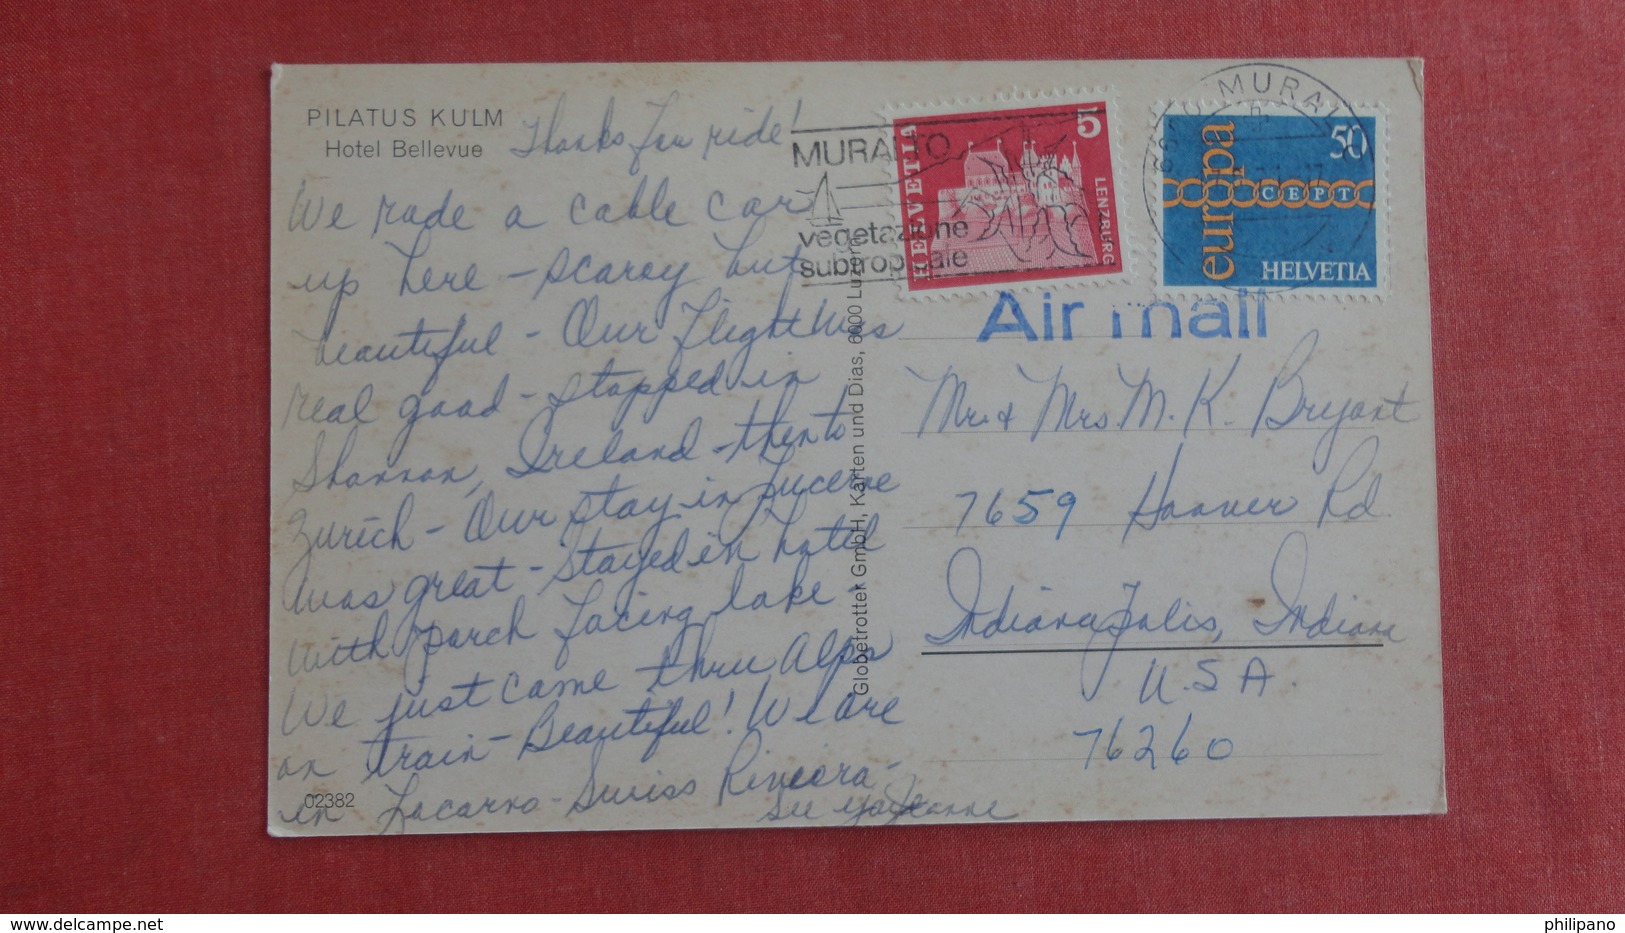 PILATUS KULM
Hotel Bellevue
Thanks for ride!
We rode a cable car
up here - scarey but
beautiful - Our flight was
real good - stopped in
Shannon, Ireland - then to
Zurich - Our stay in Lucerne
was great - Stayed in hotel
with porch facing lake.
We just came thru Alps
on train - Beautiful! We are
in Locarno - Swiss Riveora -
See ya Jeanne
02382
Globetrotter GmbH, Karten und Dias, 6000 Luzern
MURALTO
vegetazione
subtropicale
HELVETIA
5
LENZBURG
europa
50
CEPT
HELVETIA
MURALTO
Air mail
Mr. & Mrs M. K. Bryant
7659 Hoover Rd
Indianapolis, Indiana
U.S A
76260
delcampe.net
philipano